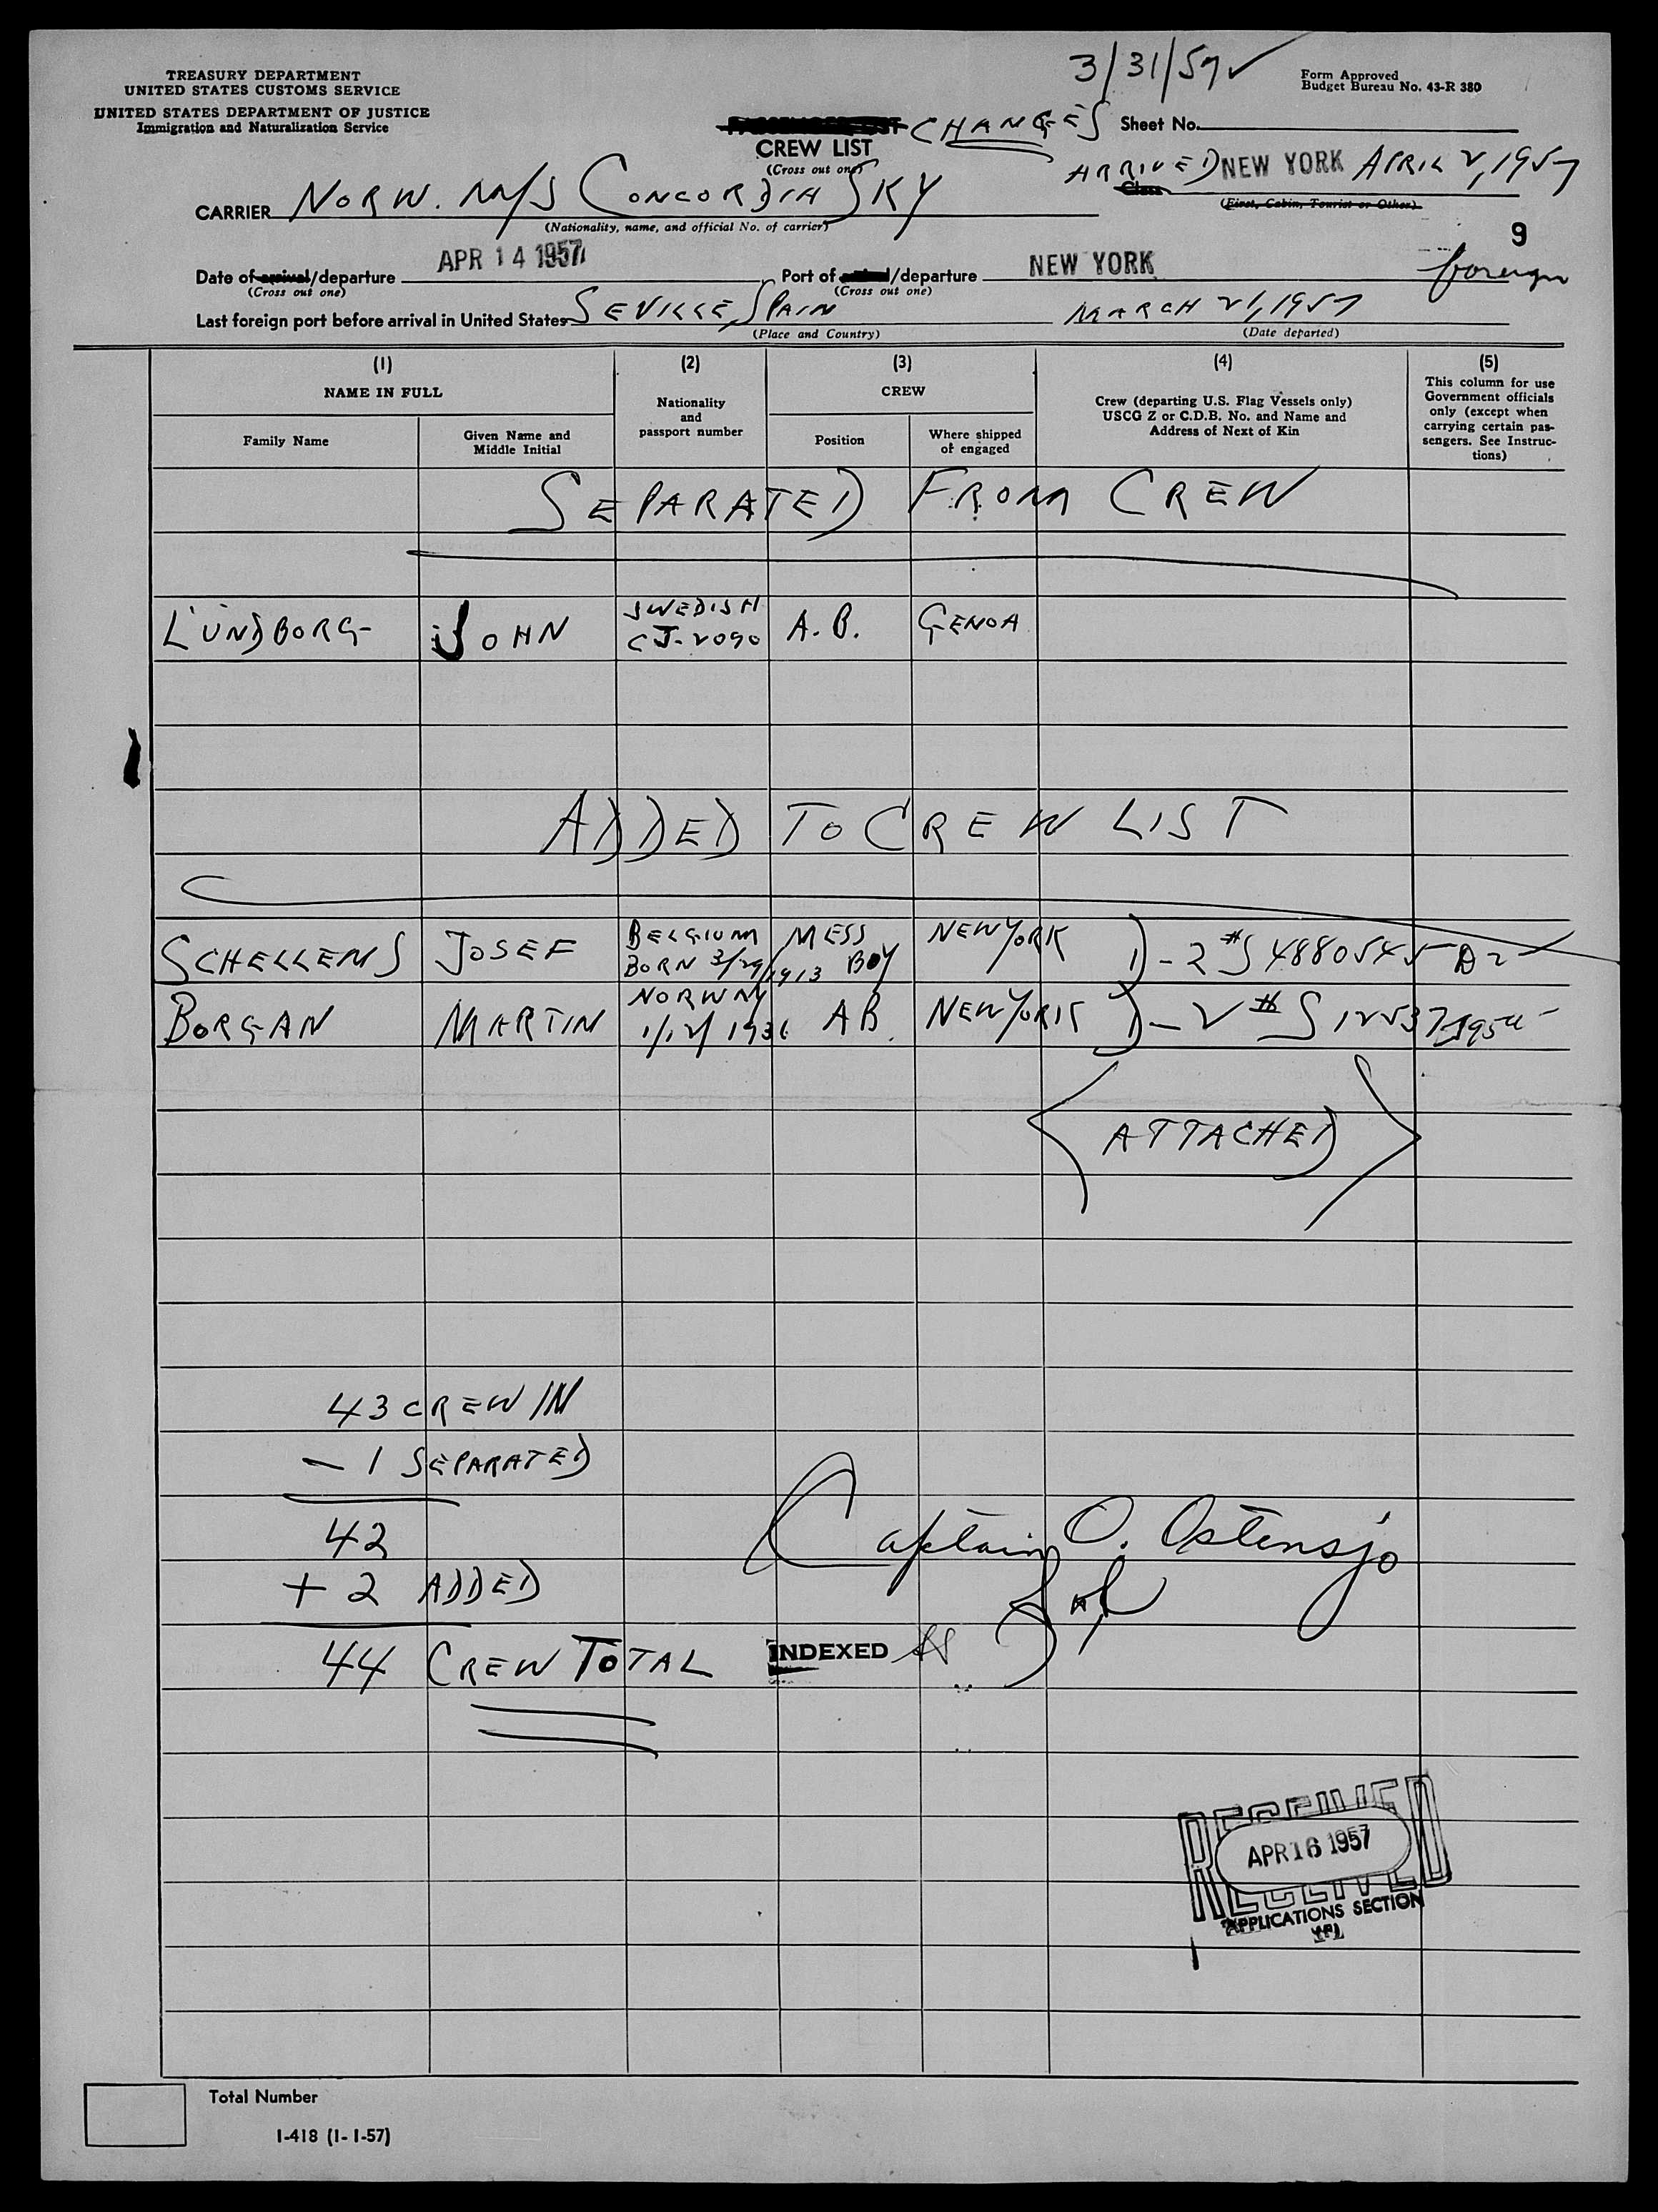 3/31/57 ✓
TREASURY DEPARTMENT
UNITED STATES CUSTOMS SERVICE
UNITED STATES DEPARTMENT OF JUSTICE
Immigration and Naturalization Service
Form Approved
Budget Bureau No. 43-R 380
CHANGES
CREW LIST
(Cross out one)
Sheet No.
ARRIVED NEW YORK APRIL 2, 1957
Class
(First, Cabin, Tourist or Other)
CARRIER NORW. M/S CONCORDIA SKY
(Nationality, name, and official No. of carrier)
9
Date of arrival/departure APR 14 1957
(Cross out one)
Port of /departure NEW YORK
(Cross out one)
foreign
Last foreign port before arrival in United States SEVILLE, SPAIN
(Place and Country)
MARCH 21, 1957
(Date departed)
(1)
NAME IN FULL
Family Name
Given Name and
Middle Initial
(2)
Nationality
and
passport number
(3)
CREW
Position
Where shipped
or engaged
(4)
Crew (departing U.S. Flag Vessels only)
USCG Z or C.D.B. No. and Name and
Address of Next of Kin
(5)
This column for use
Government officials
only (except when
carrying certain pas-
sengers. See Instruc-
tions)
SEPARATED FROM CREW
LUNDBORG JOHN SWEDISH CJ-2090 A.B. GENOA
ADDED TO CREW LIST
SCHELLEMS JOSEF BELGIUM BORN 3/29/1913 MESS BOY NEW YORK D-2 #S 4880545
BORGAN MARTIN NORWAY 1/12/1936 AB NEW YORK D-2 #S 12537
ATTACHED
43 CREW IN
- 1 SEPARATED
42
+ 2 ADDED
44 CREW TOTAL
Captain O. Ostensjo
INDEXED
RECEIVED
APR 16 1957
RECEIVED
APPLICATIONS SECTION
Total Number
I-418 (1-1-57)